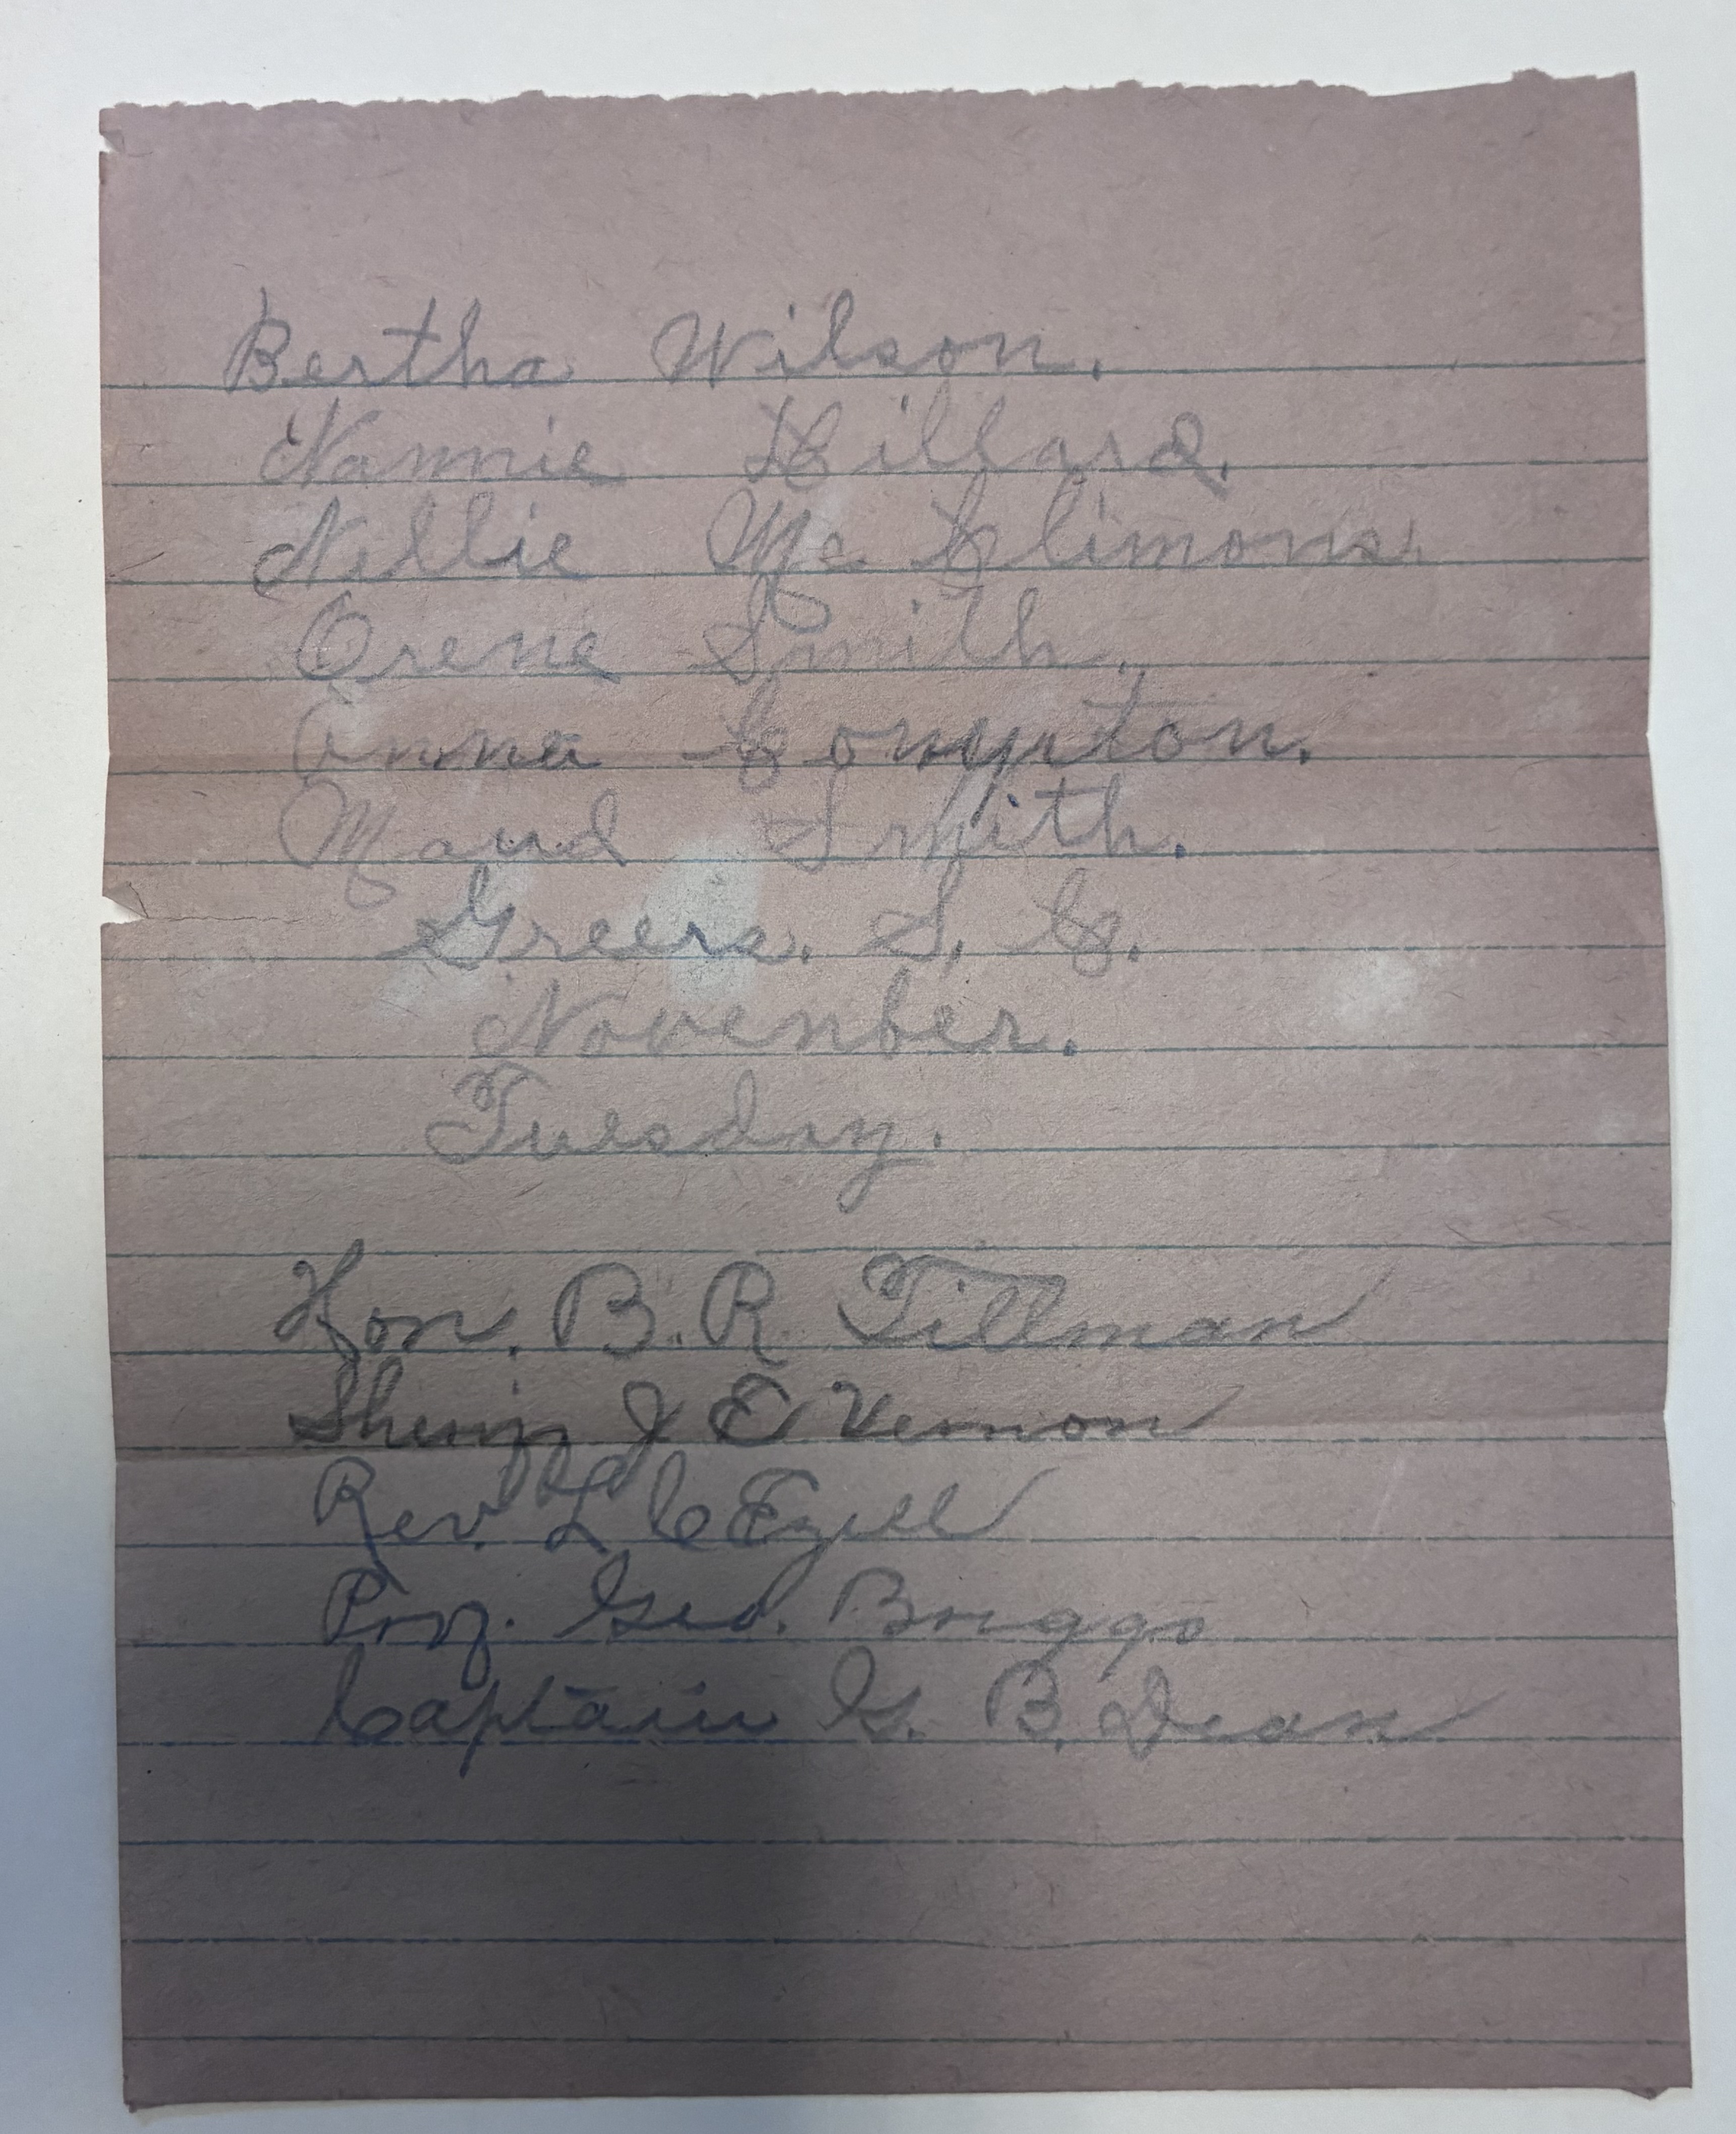 Bertha Wilson.
Nannie Hillard.
Nellie Mc Climons.
Orene Smith.
Anna Compton.
Maud Smith.
Greers. S. C.
November.
Tuesday.
Hon. B. R. Tillman
Sheriff J E Vernon
Rev. L C Ezell
Prof. Geo. Briggs
Captain G. B. Dean